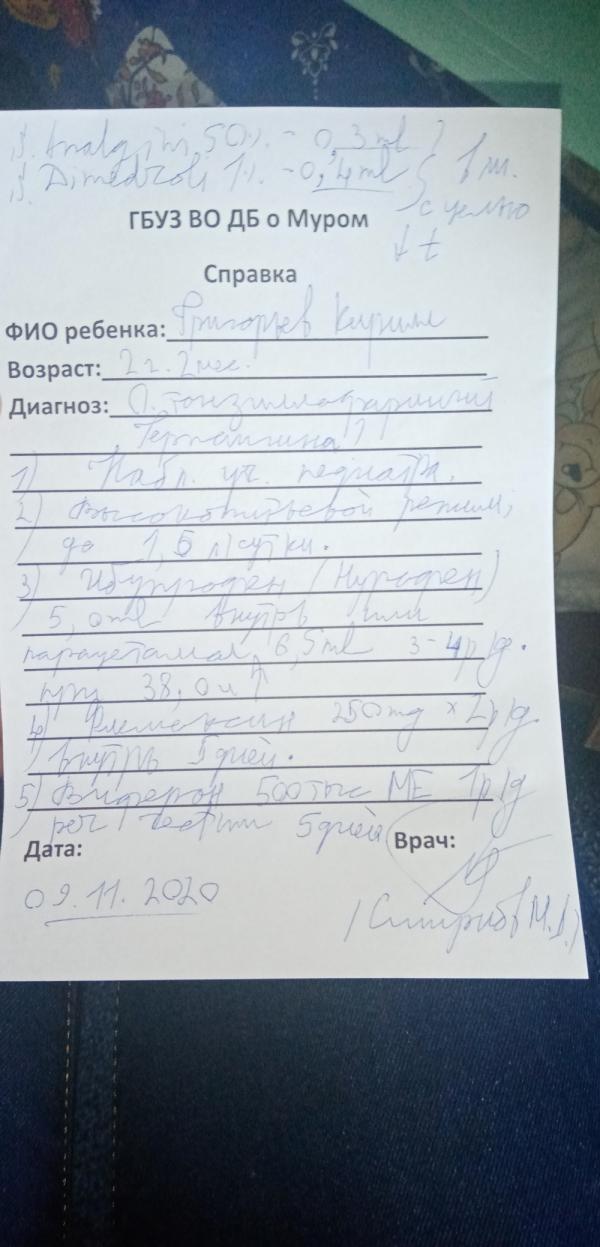 S. Analgini 50% - 0,3 ml
S. Dimedroli 1% - 0,4 ml } в/м.
с целью
↓ t
ГБУЗ ВО ДБ о Муром
Справка
ФИО ребенка: Григорьев Кирилл
Возраст: 2 г. 2 мес.
Диагноз: О. тонзиллофарингит
Герпангина
1) Набл. уч. педиатра.
2) Высокопитьевой режим,
до 1,5 л/сутки.
3) Ибупрофен (Нурофен)
5,0 ml внутрь или
парацетамол 6,5 ml 3-4 р/д.
при 38,0 и ↑
4) Флемоксин 250 mg x 2 р/д
внутрь 5 дней.
5) Виферон 500 тыс МЕ 1 р/д
5 дней
Дата: Врач:
09.11.2020
(Смирнов М.А.)